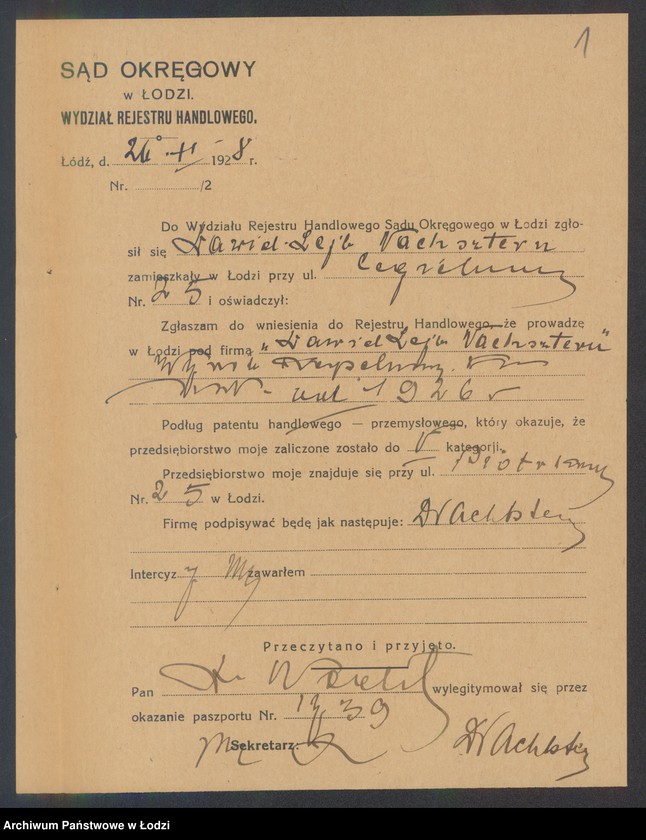 1
SĄD OKRĘGOWY
w ŁODZI.
WYDZIAŁ REJESTRU HANDLOWEGO.
Łódź, d. 26 XI 1928 r.
Nr. /2
Do Wydziału Rejestru Handlowego Sądu Okręgowego w Łodzi zgło-
sił się Dawid-Lejb Wachsztern
zamieszkały w Łodzi przy ul.
Nr. 25 i oświadczył:
Zgłaszam do wniesienia do Rejestru Handlowego, że prowadzę
w Łodzi pod firmą „Dawid Lejb Wachsztern”
od 1926 r
Podług patentu handlowego — przemysłowego, który okazuje, że
przedsiębiorstwo moje zaliczone zostało do V kategorji.
Przedsiębiorstwo moje znajduje się przy ul.
Nr. 25 w Łodzi.
Firmę podpisywać będę jak następuje: DWachsztern
Intercyzy nie zawarłem
Przeczytano i przyjęto.
Pan wylegitymował się przez
okazanie paszportu Nr.
Sekretarz: